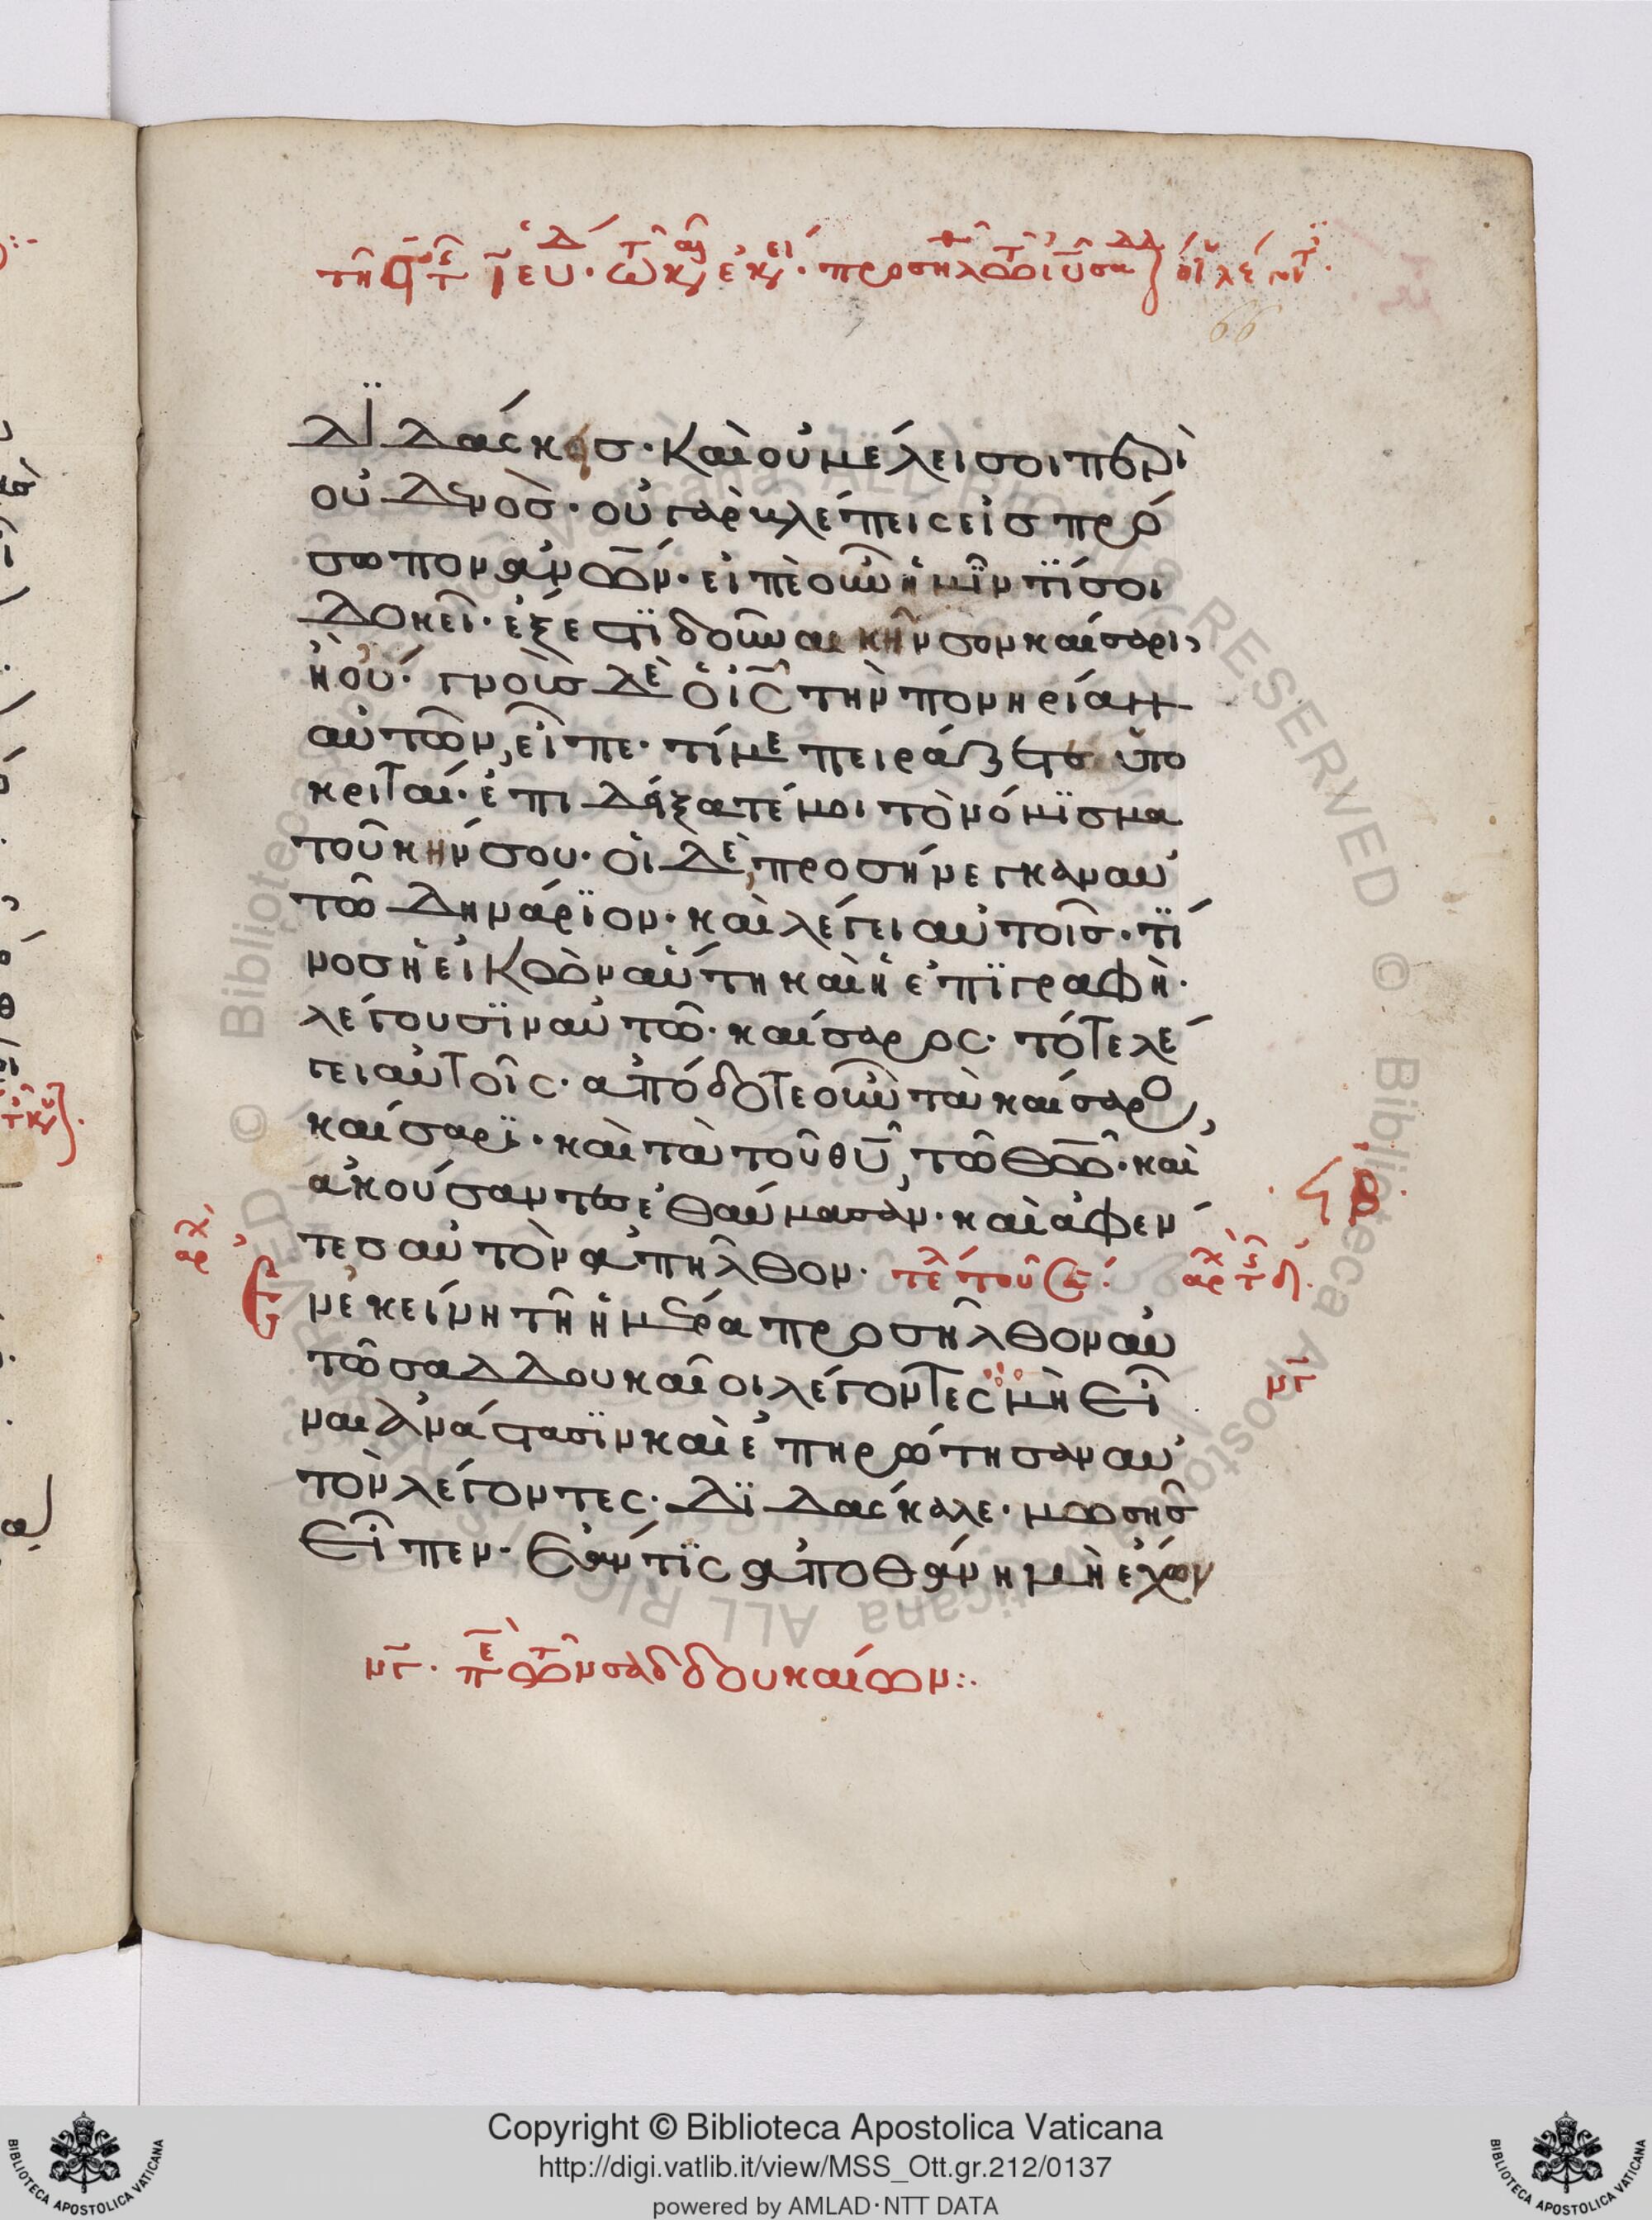 66
διδάσκεις· καὶ οὐ μέλει σοι περὶ
οὐδενὸς· οὐ γὰρ βλέπεις εἰς πρό
σωπον ἀνων· εἰπὲ οὖν ἡμῖν τί σοι
δοκεῖ· ἔξεστι δοῦναι κῆνσον καίσαρι,
ἢ οὔ· γνοὺς δὲ ὁ ις τὴν πονηρίαν
αὐτῶν, εἶπε· τί με πειράζετε ὑπο
κριταί· ἐπιδείξατέ μοι τὸ νόμισμα
τοῦ κήνσου· οἱ δὲ, προσήνεγκαν αὐ
τῶ δηνάριον· καὶ λέγει αὐτοῖς· τί
νος ἡ εἰκὼν αὕτη καὶ ἡ ἐπιγραφὴ·
λέγουσιν αὐτῶ· καίσαρος· τότε λέ
γει αὐτοῖς· ἀπόδοτε οὖν τὰ καίσαρο,
καίσαρι· καὶ τὰ τοῦ θυ, τῶ θω· καὶ
ἀκούσαντες ἐθαύμασαν· καὶ ἀφέν
τες αὐτὸν ἀπῆλθον·
ν ἐκείνη τῆ ἡμέρα προσῆλθον αὐ
τῶ σαδδουκαῖοι λέγοντες μὴ εἶ
ναι ἀνάστασιν καὶ ἐπηρώτησαν αὐ
τὸν λέγοντες· διδάσκαλε· μωσῆς
εἶπεν· ἐάν τις ἀποθάνη μὴ ἔχων
νγ· πε τῶν σαδδουκαίων:·
νγ
© Biblioteca Apostolica Vaticana ALL RIGHTS RESERVED
Copyright © Biblioteca Apostolica Vaticana
http://digi.vatlib.it/view/MSS_Ott.gr.212/0137
powered by AMLAD·NTT DATA
BIBLIOTECA APOSTOLICA VATICANA
BIBLIOTECA APOSTOLICA VATICANA